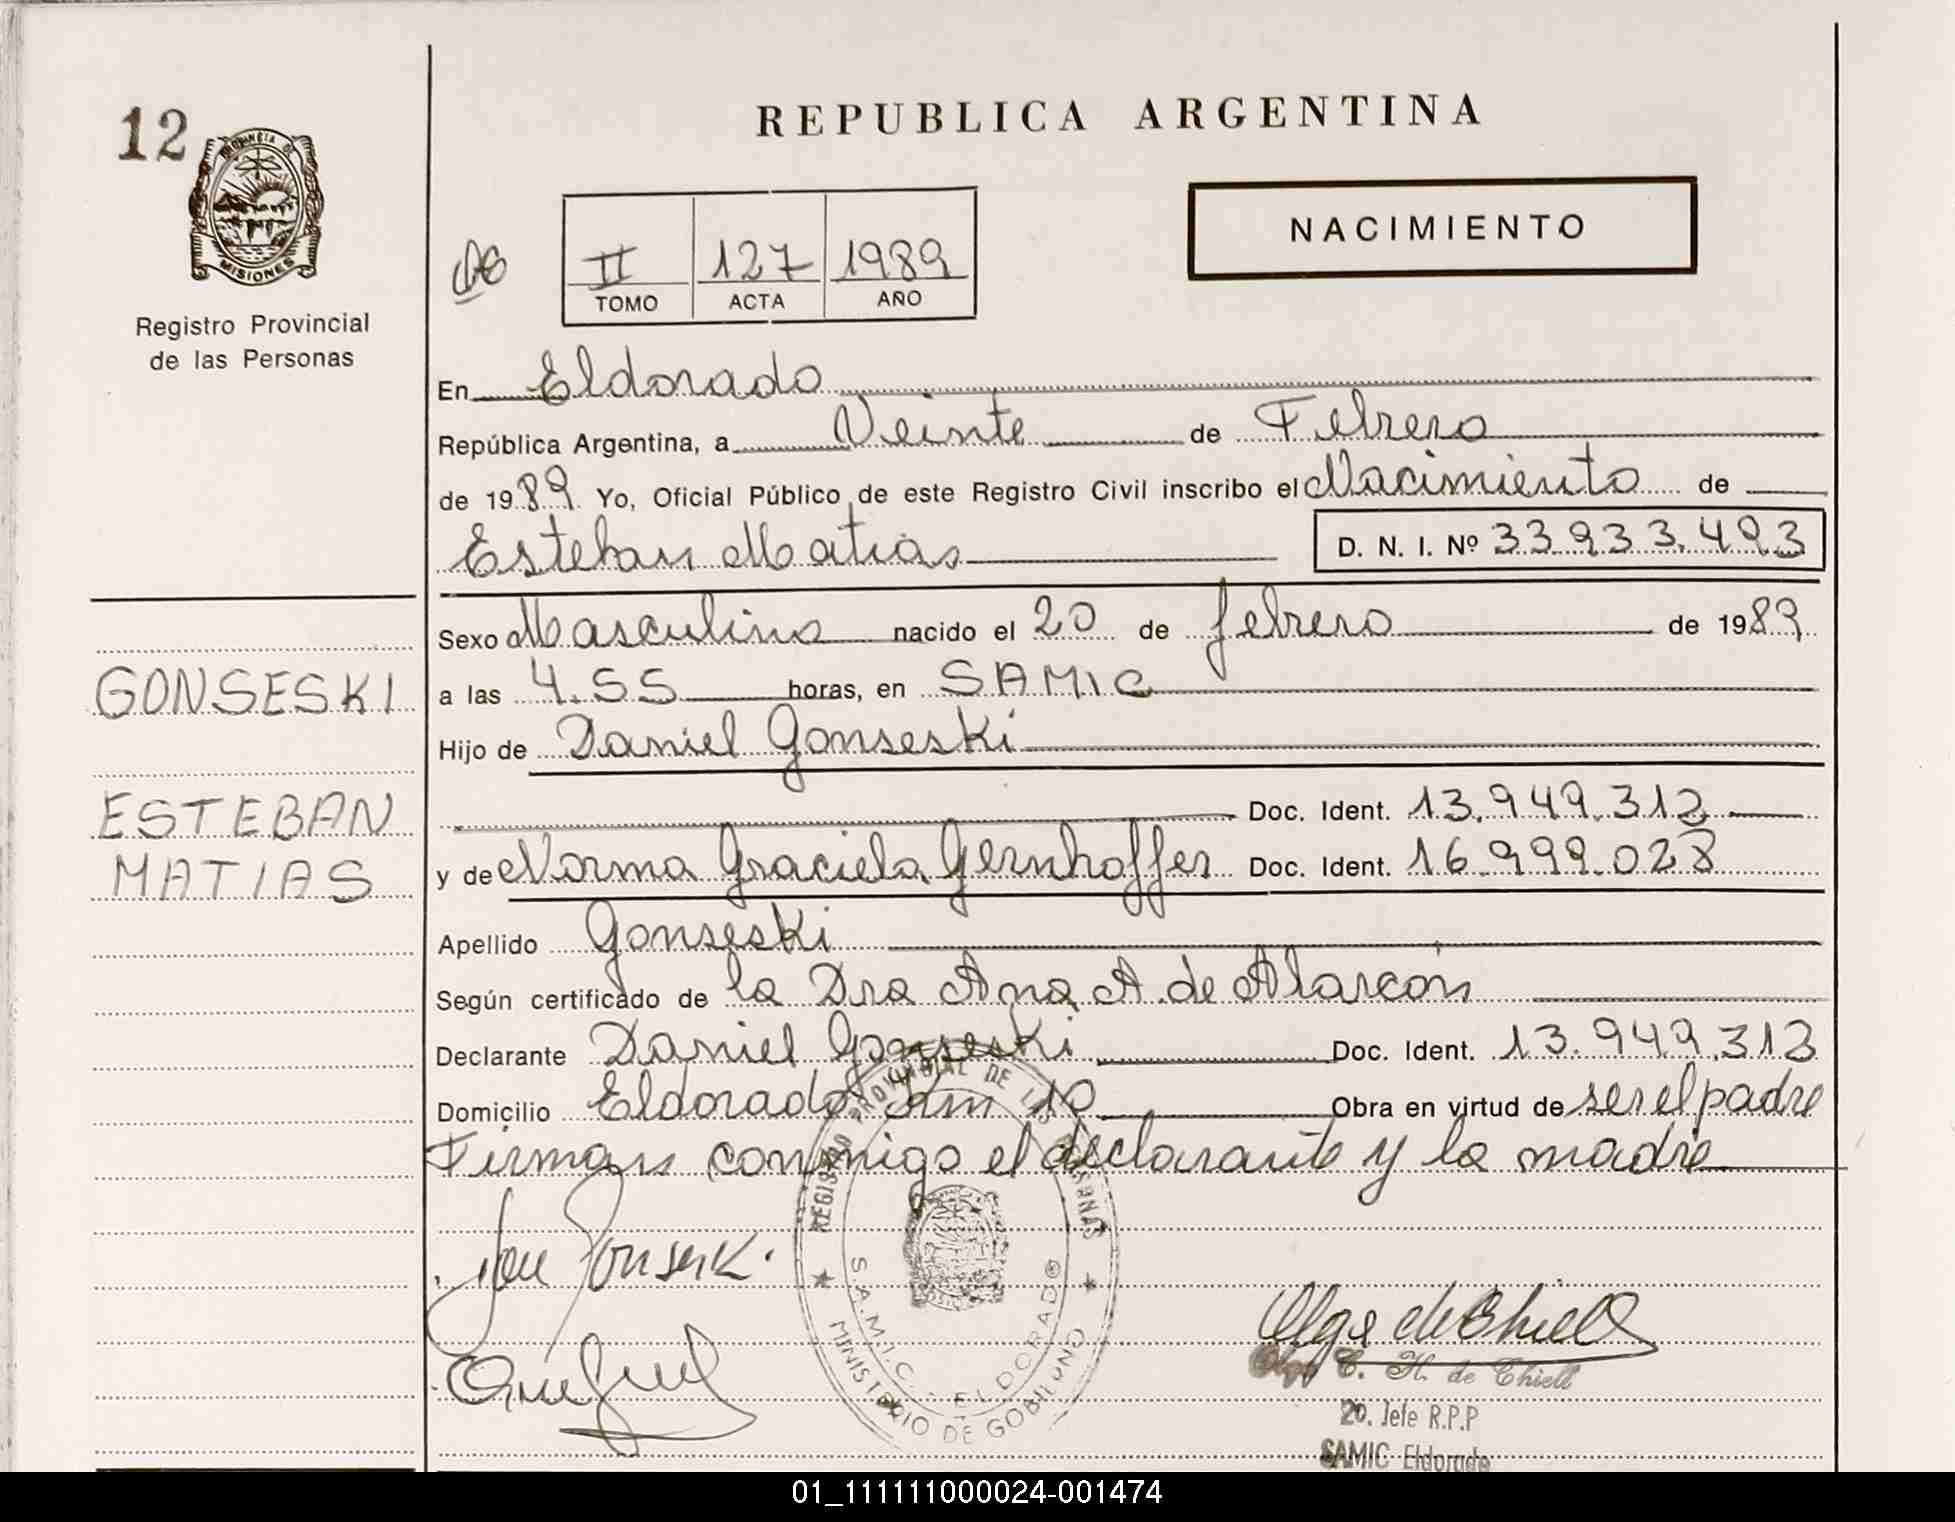 12
PROVINCIA DE
MISIONES
Registro Provincial
de las Personas
REPUBLICA ARGENTINA
NACIMIENTO
II 127 1989
TOMO ACTA AÑO
En Eldorado
República Argentina, a Veinte de Febrero
de 1989 Yo, Oficial Público de este Registro Civil inscribo el Nacimiento de
Esteban Matias D. N. I. Nº 33.933.493
Sexo Masculino nacido el 20 de febrero de 1989
GONSESKI
a las 4.55 horas, en SAMIC
Hijo de Daniel Gonseski
ESTEBAN
Doc. Ident. 13.949.313
MATIAS
y de Norma Graciela Gernhoffer Doc. Ident. 16.999.028
Apellido Gonseski
Según certificado de la Dra Ana A. de Alarcón
Declarante Daniel Gonseski Doc. Ident. 13.949.313
Domicilio Eldorado Km 10 Obra en virtud de ser el padre
Firman conmigo el declarante y la madre
REGISTRO PROVINCIAL DE LAS PERSONAS
S.A.M.I.C. - ELDORADO
MINISTERIO DE GOBIERNO
Olga de Chiell
Olga C. H. de Chiell
20. Jefe R.P.P
SAMIC Eldorado
01_111111000024-001474